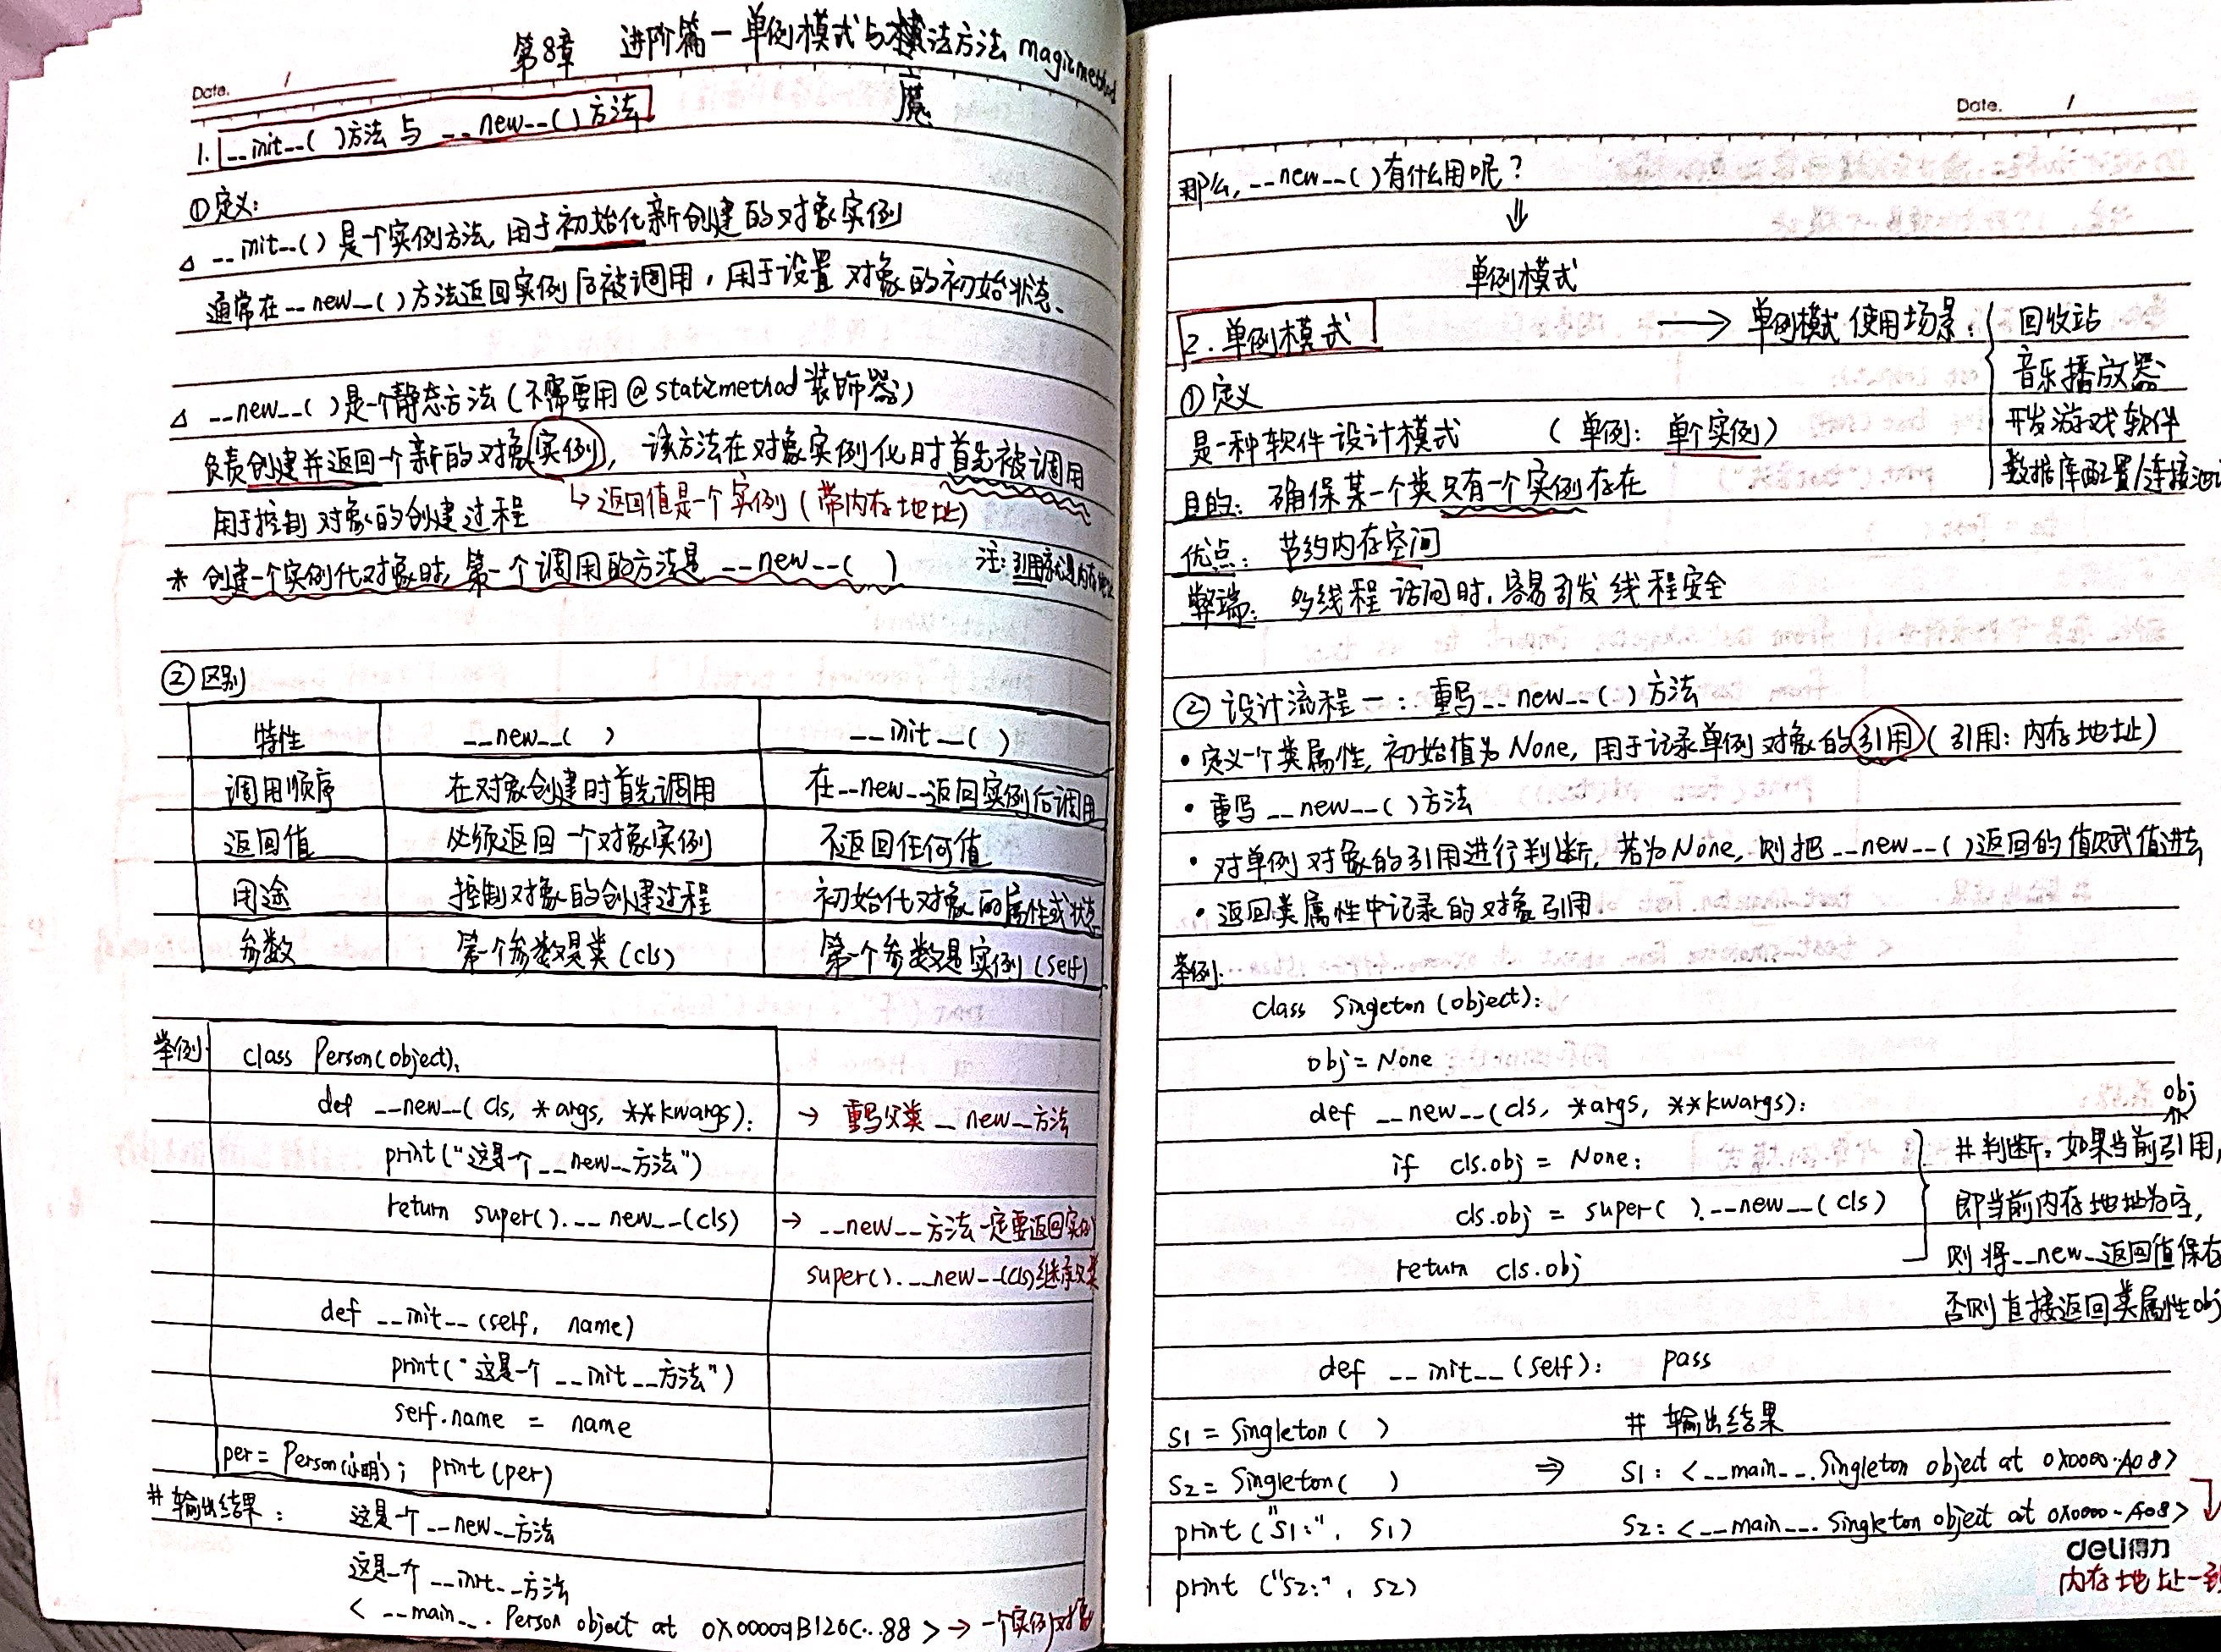 第8章 进阶篇一单例模式与魔法方法 magicmethod
Date. /
1. __init__( )方法与 __new__( )方法
①定义:
△ __init__( ) 是个实例方法, 用于初始化新创建的对象实例
通常在__new__( )方法返回实例后被调用, 用于设置对象的初始状态、
△ __new__( )是一个静态方法(不需要用@staticmethod装饰器)
负责创建并返回一个新的对象实例, 该方法在对象实例化时首先被调用
↳ 返回值是一个实例(带内存地址)
用于控制对象的创建过程
* 创建一个实例化对象时, 第一个调用的方法是 __new__( ) 注: 引用就是内存地址
②区别
特性 __new__( ) __init__( )
调用顺序 在对象创建时首先调用 在__new__返回实例后调用
返回值 必须返回一个对象实例 不返回任何值
用途 控制对象的创建过程 初始化对象的属性或状态
参数 第一个参数是类(cls) 第一个参数是实例(self)
举例 class Person(object):
def __new__( cls, *args, **kwargs): → 重写父类__new__方法
print("这是一个__new__方法")
return super().__new__(cls) → __new__方法一定要返回实例
super().__new__(cls)继承父类
def __init__(self, name)
print("这是一个__init__方法")
self.name = name
per = Person(小明); print(per)
# 输出结果: 这是一个__new__方法
这是一个__init__方法
< __main__. Person object at 0X00001B126C...88 > → 一个实例对象
Date. /
那么, __new__( )有什么用呢?
⇓
单例模式
2. 单例模式 → 单例模式使用场景: 回收站
音乐播放器
①定义
开发游戏软件
是一种软件设计模式 (单例: 单个实例)
数据库配置/连接池
目的: 确保某一个类只有一个实例存在
优点: 节约内存空间
弊端: 多线程访问时, 容易引发线程安全
②设计流程一: 重写__new__( )方法
• 定义一个类属性, 初始值为None, 用于记录单例对象的引用(引用: 内存地址)
• 重写__new__( )方法
• 对单例对象的引用进行判断, 若为None, 则把__new__( )返回的值赋值进去
• 返回类属性中记录的对象引用
举例:
class Singleton(object):
obj = None
def __new__(cls, *args, **kwargs): obj
if cls.obj = None: #判断: 如果当前引用,
cls.obj = super( ).__new__(cls) 即当前内存地址为空,
return cls.obj 则将__new__返回值保存
否则直接返回类属性obj
def __init__(self): pass
S1 = Singleton( ) # 输出结果
S2 = Singleton( ) ⇒ S1: <__main__.Singleton object at 0X0000..A08>
print("S1:", S1) S2: <__main__. Singleton object at 0X0000-A08>
deli得力
print ("S2:", S2) 内存地址一致